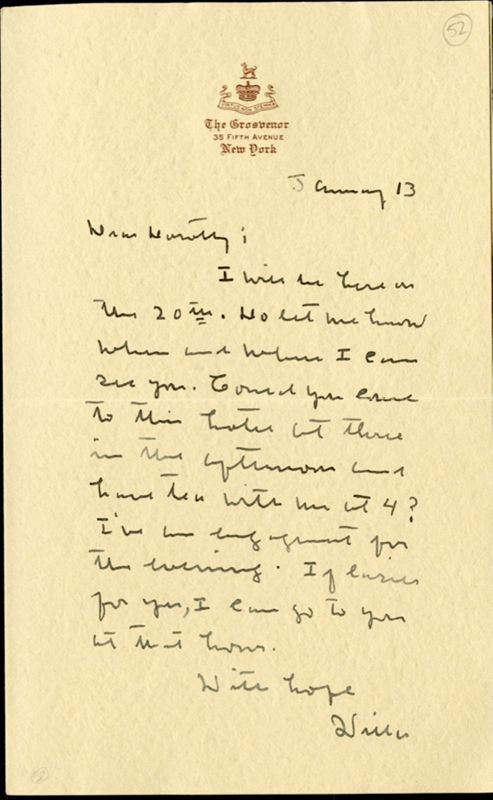 52
VIRTUS NON STEMMA
The Grosvenor
35 FIFTH AVENUE
New York
January 13
Dear Dorothy;
I will be here on
the 20th. Do let me know
when and where I can
see you. Could you come
to this hotel at three
in the afternoon and
have tea with me at 4?
I've an engagement for
the evening. If easier
for you, I can go to you
at that hour.
With hope
Willa
52